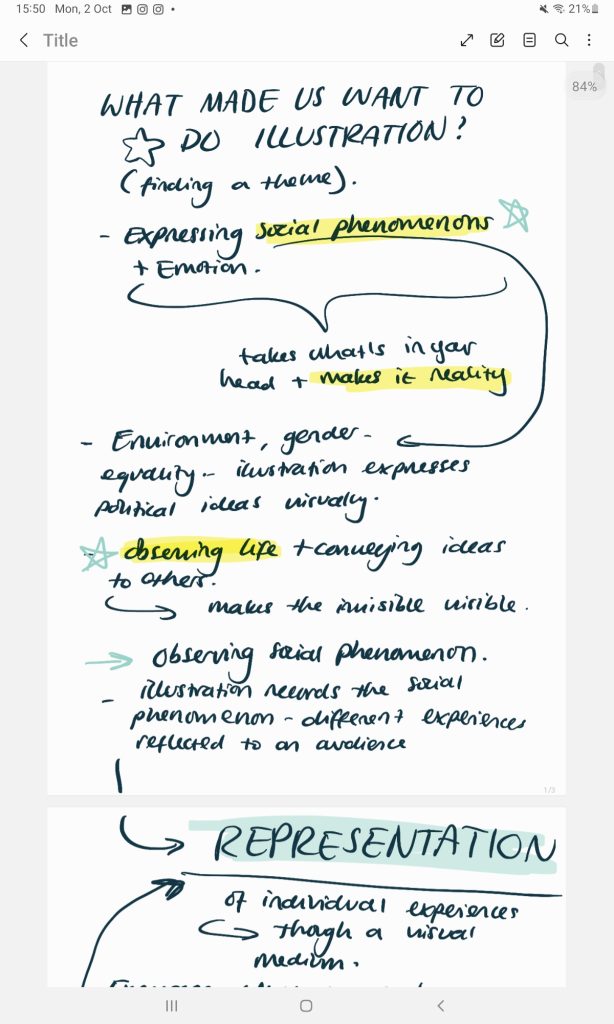 15:50 Mon, 2 Oct
21%
Title
84%
WHAT MADE US WANT TO
DO ILLUSTRATION?
(finding a theme).
- Expressing social phenomenons
+ Emotion.
takes whats in your
head + makes it reality
- Environment, gender-
equality - illustration expresses
political ideas visually.
- observing life + conveying ideas
to others.
makes the invisible visible.
observing social phenomenon.
- illustration records the social
phenomenon - different experiences
reflected to an audience
1/3
REPRESENTATION
of individual experiences
though a visual
medium.